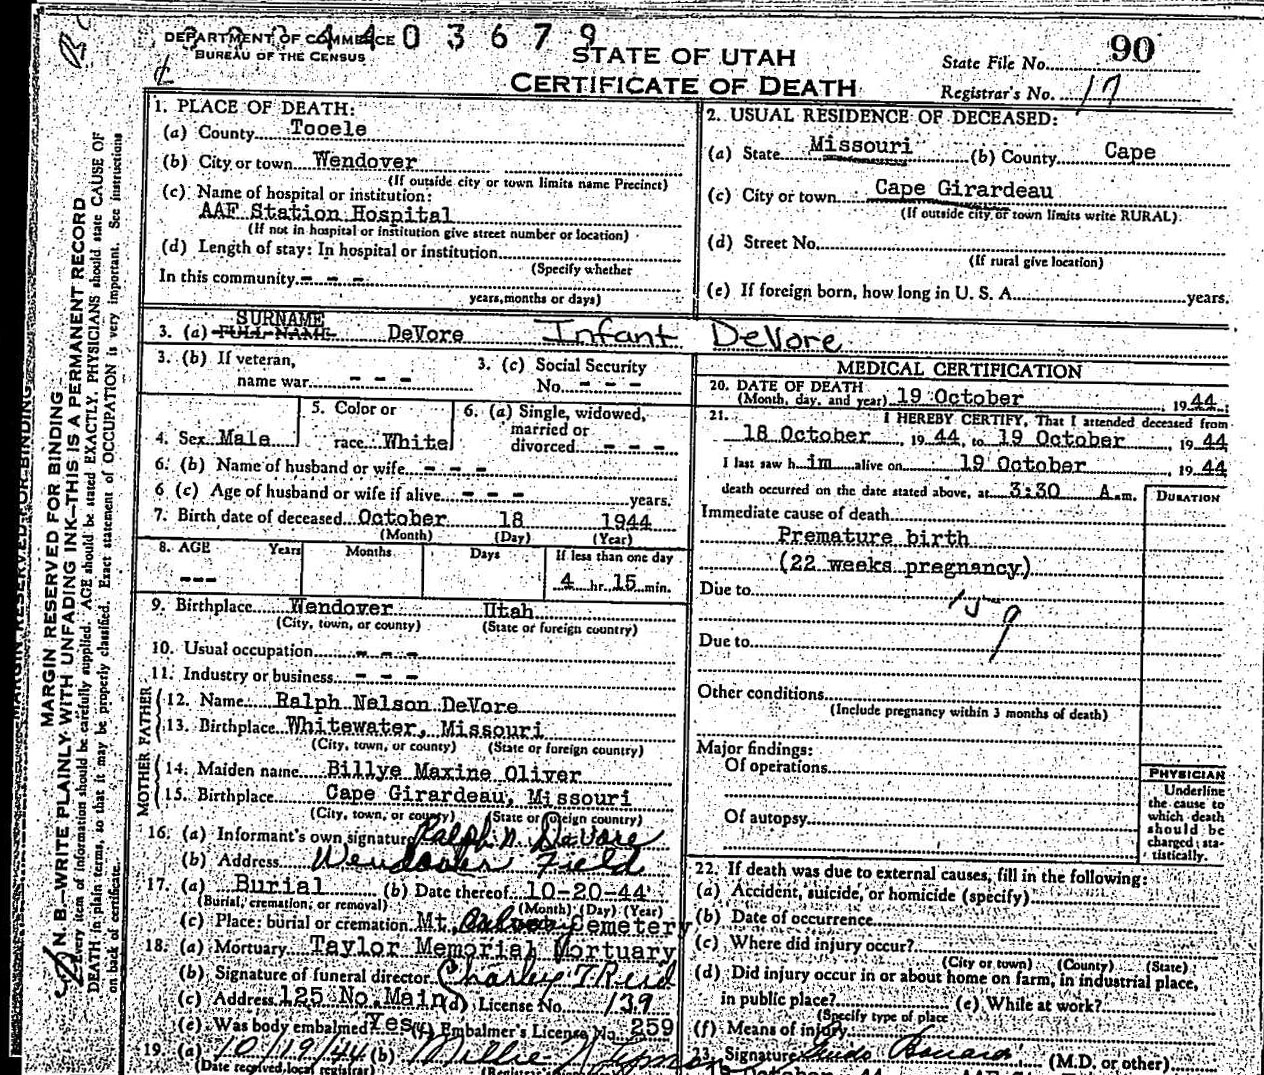 DEPARTMENT OF COMMERCE
BUREAU OF THE CENSUS
4 4 0 3 6 7 9
STATE OF UTAH
CERTIFICATE OF DEATH
State File No. 90
Registrar's No. 17
1. PLACE OF DEATH:
(a) County Tooele
(b) City or town Wendover
(If outside city or town limits name Precinct)
(c) Name of hospital or institution:
AAF Station Hospital
(If not in hospital or institution give street number or location)
(d) Length of stay: In hospital or institution
(Specify whether
In this community - - -
years, months or days)
2. USUAL RESIDENCE OF DECEASED:
(a) State Missouri (b) County Cape
(c) City or town Cape Girardeau
(If outside city or town limits write RURAL)
(d) Street No.
(If rural give location)
(e) If foreign born, how long in U. S. A. years.
SURNAME
3. (a) FULL NAME DeVore Infant DeVore
3. (b) If veteran,
name war - - -
3. (c) Social Security
No. - - -
4. Sex Male
5. Color or
race White
6. (a) Single, widowed,
married or
divorced - - -
6. (b) Name of husband or wife - - -
6 (c) Age of husband or wife if alive - - - years.
7. Birth date of deceased October 18 1944
(Month) (Day) (Year)
8. AGE Years Months Days If less than one day
--- 4 hr. 15 min.
9. Birthplace Wendover Utah
(City, town, or county) (State or foreign country)
10. Usual occupation - - -
11. Industry or business - - -
FATHER
12. Name Ralph Nelson DeVore
13. Birthplace Whitewater, Missouri
(City, town, or county) (State or foreign country)
MOTHER
14. Maiden name Billye Maxine Oliver
15. Birthplace Cape Girardeau, Missouri
(City, town, or county) (State or foreign country)
16. (a) Informant's own signature Ralph N. DeVore
(b) Address Wendover Field
17. (a) Burial (b) Date thereof 10-20-44
(Burial, cremation, or removal) (Month) (Day) (Year)
(c) Place: burial or cremation Mt. Calvary Cemetery
18. (a) Mortuary Taylor Memorial Mortuary
(b) Signature of funeral director Charley T. Reid
(c) Address 125 No. Main (d) License No. 139
(e) Was body embalmed Yes (f) Embalmer's License No. 259
19. (a) 10/19/44 (b) Millie
(Date received local registrar)
MEDICAL CERTIFICATION
20. DATE OF DEATH
(Month, day, and year) 19 October, 1944
21. I HEREBY CERTIFY, That I attended deceased from
18 October, 1944, to 19 October 1944
I last saw him alive on 19 October 1944
death occurred on the date stated above, at 3:30 A.m.
DURATION
Immediate cause of death
Premature birth
(22 weeks pregnancy)
Due to
159
Due to
Other conditions
(Include pregnancy within 3 months of death)
Major findings:
Of operations
Of autopsy
PHYSICIAN
Underline
the cause to
which death
should be
charged sta-
tistically.
22. If death was due to external causes, fill in the following:
(a) Accident, suicide, or homicide (specify)
(b) Date of occurrence
(c) Where did injury occur?
(City or town) (County) (State)
(d) Did injury occur in or about home on farm, in industrial place,
in public place? (e) While at work?
(Specify type of place
(f) Means of injury
23. Signature (M.D. or other)
MARGIN RESERVED FOR BINDING
N. B.—WRITE PLAINLY WITH UNFADING INK—THIS IS A PERMANENT RECORD
Every item of information should be carefully supplied. AGE should be stated EXACTLY. PHYSICIANS should state CAUSE OF
DEATH in plain terms, so that it may be properly classified. Exact statement of OCCUPATION is very important. See instructions
on back of certificate.